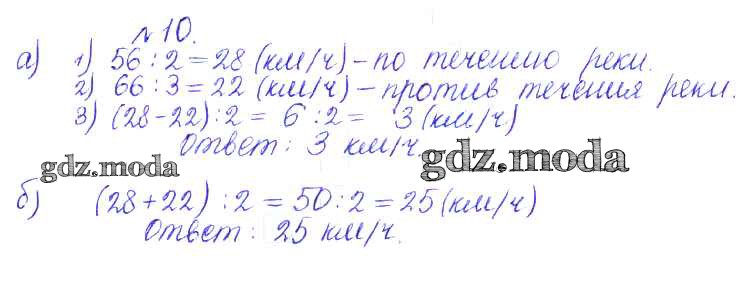 № 10.
а) 1) 56 : 2 = 28 (км/ч) – по течению реки.
2) 66 : 3 = 22 (км/ч) – против течения реки.
3) (28 – 22) : 2 = 6 : 2 = 3 (км/ч)
Ответ: 3 км/ч.
gdz.moda gdz.moda
б) (28 + 22) : 2 = 50 : 2 = 25 (км/ч)
Ответ: 25 км/ч.